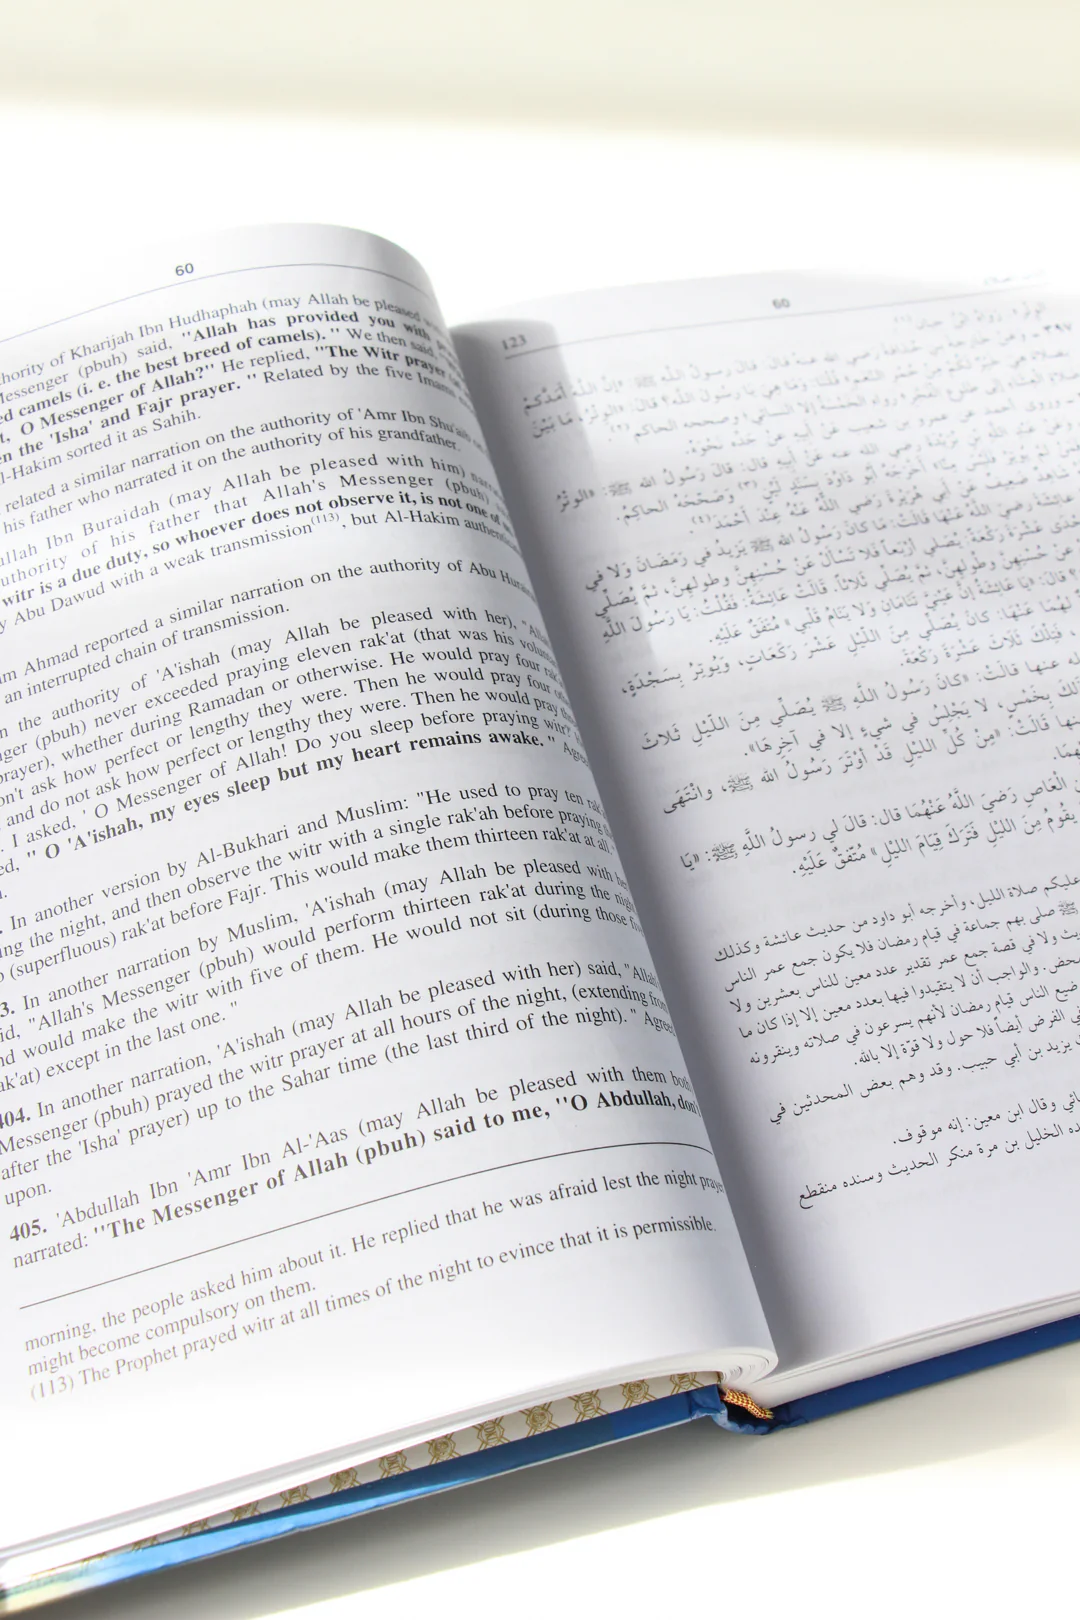 60
hority of Kharijah Ibn Hudhaphah (may Allah be pleased
Messenger (pbuh) said, "Allah has provided you with
ed camels (i. e. the best breed of camels)." We then said,
t, O Messenger of Allah?" He replied, "The Witr prayer
en the 'Isha' and Fajr prayer. " Related by the five Imams
l-Hakim sorted it as Sahih.
related a similar narration on the authority of 'Amr Ibn Shu'aib
his father who narrated it on the authority of his grandfather.
ullah Ibn Buraidah (may Allah be pleased with him)
uthority of his father that Allah's Messenger (pbuh)
witr is a due duty, so whoever does not observe it, is not one of
y Abu Dawud with a weak transmission(113), but Al-Hakim
am Ahmad reported a similar narration on the authority of Abu
an interrupted chain of transmission.
n the authority of 'A'ishah (may Allah be pleased with her),
ger (pbuh) never exceeded praying eleven rak'at (that was his
prayer), whether during Ramadan or otherwise. He would pray four
on't ask how perfect or lengthy they were. Then he would pray four
, and do not ask how perfect or lengthy they were. Then he would pray
. I asked, ' O Messenger of Allah! Do you sleep before praying witr?
ed, " O 'A'ishah, my eyes sleep but my heart remains awake. "
. In another version by Al-Bukhari and Muslim: "He used to pray ten
ing the night, and then observe the witr with a single rak'ah before praying
o (superfluous) rak'at before Fajr. This would make them thirteen rak'at at all."
3. In another narration by Muslim, 'A'ishah (may Allah be pleased with
id, "Allah's Messenger (pbuh) would perform thirteen rak'at during the
nd would make the witr with five of them. He would not sit (during those
ak'at) except in the last one. "
404. In another narration, 'A'ishah (may Allah be pleased with her) said,
Messenger (pbuh) prayed the witr prayer at all hours of the night, (extending
after the 'Isha' prayer) up to the Sahar time (the last third of the night)."
upon.
405. 'Abdullah Ibn 'Amr Ibn Al-'Aas (may Allah be pleased with them both
narrated: "The Messenger of Allah (pbuh) said to me, "O Abdullah, don'
morning, the people asked him about it. He replied that he was afraid lest the night
might become compulsory on them.
(113) The Prophet prayed witr at all times of the night to evince that it is permissible.
123 60
قال رسول الله ﷺ: «الوتر
عائشة رضي الله عنها قالت: ما كان رسول الله ﷺ يزيد في رمضان ولا في
حدى عشرة ركعة: يصلي أربعاً فلا تسأل عن حسنهن وطولهن، ثم يصلي
عن حسنهن وطولهن، ثم يصلي ثلاثاً. قالت عائشة: فقلت: يا رسول الله
؟ قال: «يا عائشة إن عيني تنامان ولا ينام قلبي» متفق عليه.
لهما عنها: كان يصلي من الليل عشر ركعات، ويوتر بسجدة،
، فتلك ثلاث عشرة ركعة.
له عنها قالت: «كان رسول الله ﷺ يصلي من الليل ثلاث
لك بخمس، لا يجلس في شيء إلا في آخرها».
نها قالت: «من كل الليل قد أوتر رسول الله ﷺ، وانتهى
هما.
ن العاص رضي الله عنهما قال: قال لي رسول الله ﷺ: «يا
يقوم من الليل فترك قيام الليل» متفق عليه.
عليكم صلاة الليل، وأخرجه أبو داود من حديث عائشة وكذلك
ﷺ صلى بهم جماعة في قيام رمضان فلا يكون جمع عمر الناس
يث ولا في قصة جمع عمر تقدير عدد معين للناس بعشرين ولا
محض. والواجب أن لا يتقيدوا فيها بعدد معين إلا إذا كان ما
ضيع الناس قيام رمضان لأنهم يسرعون في صلاته وينقرونه
في الفرض أيضاً فلا حول ولا قوة إلا بالله.
ن يزيد بن أبي حبيب. وقد وهم بعض المحدثين في
ائي وقال ابن معين: إنه موقوف.
ده الخليل بن مرة منكر الحديث وسنده منقطع